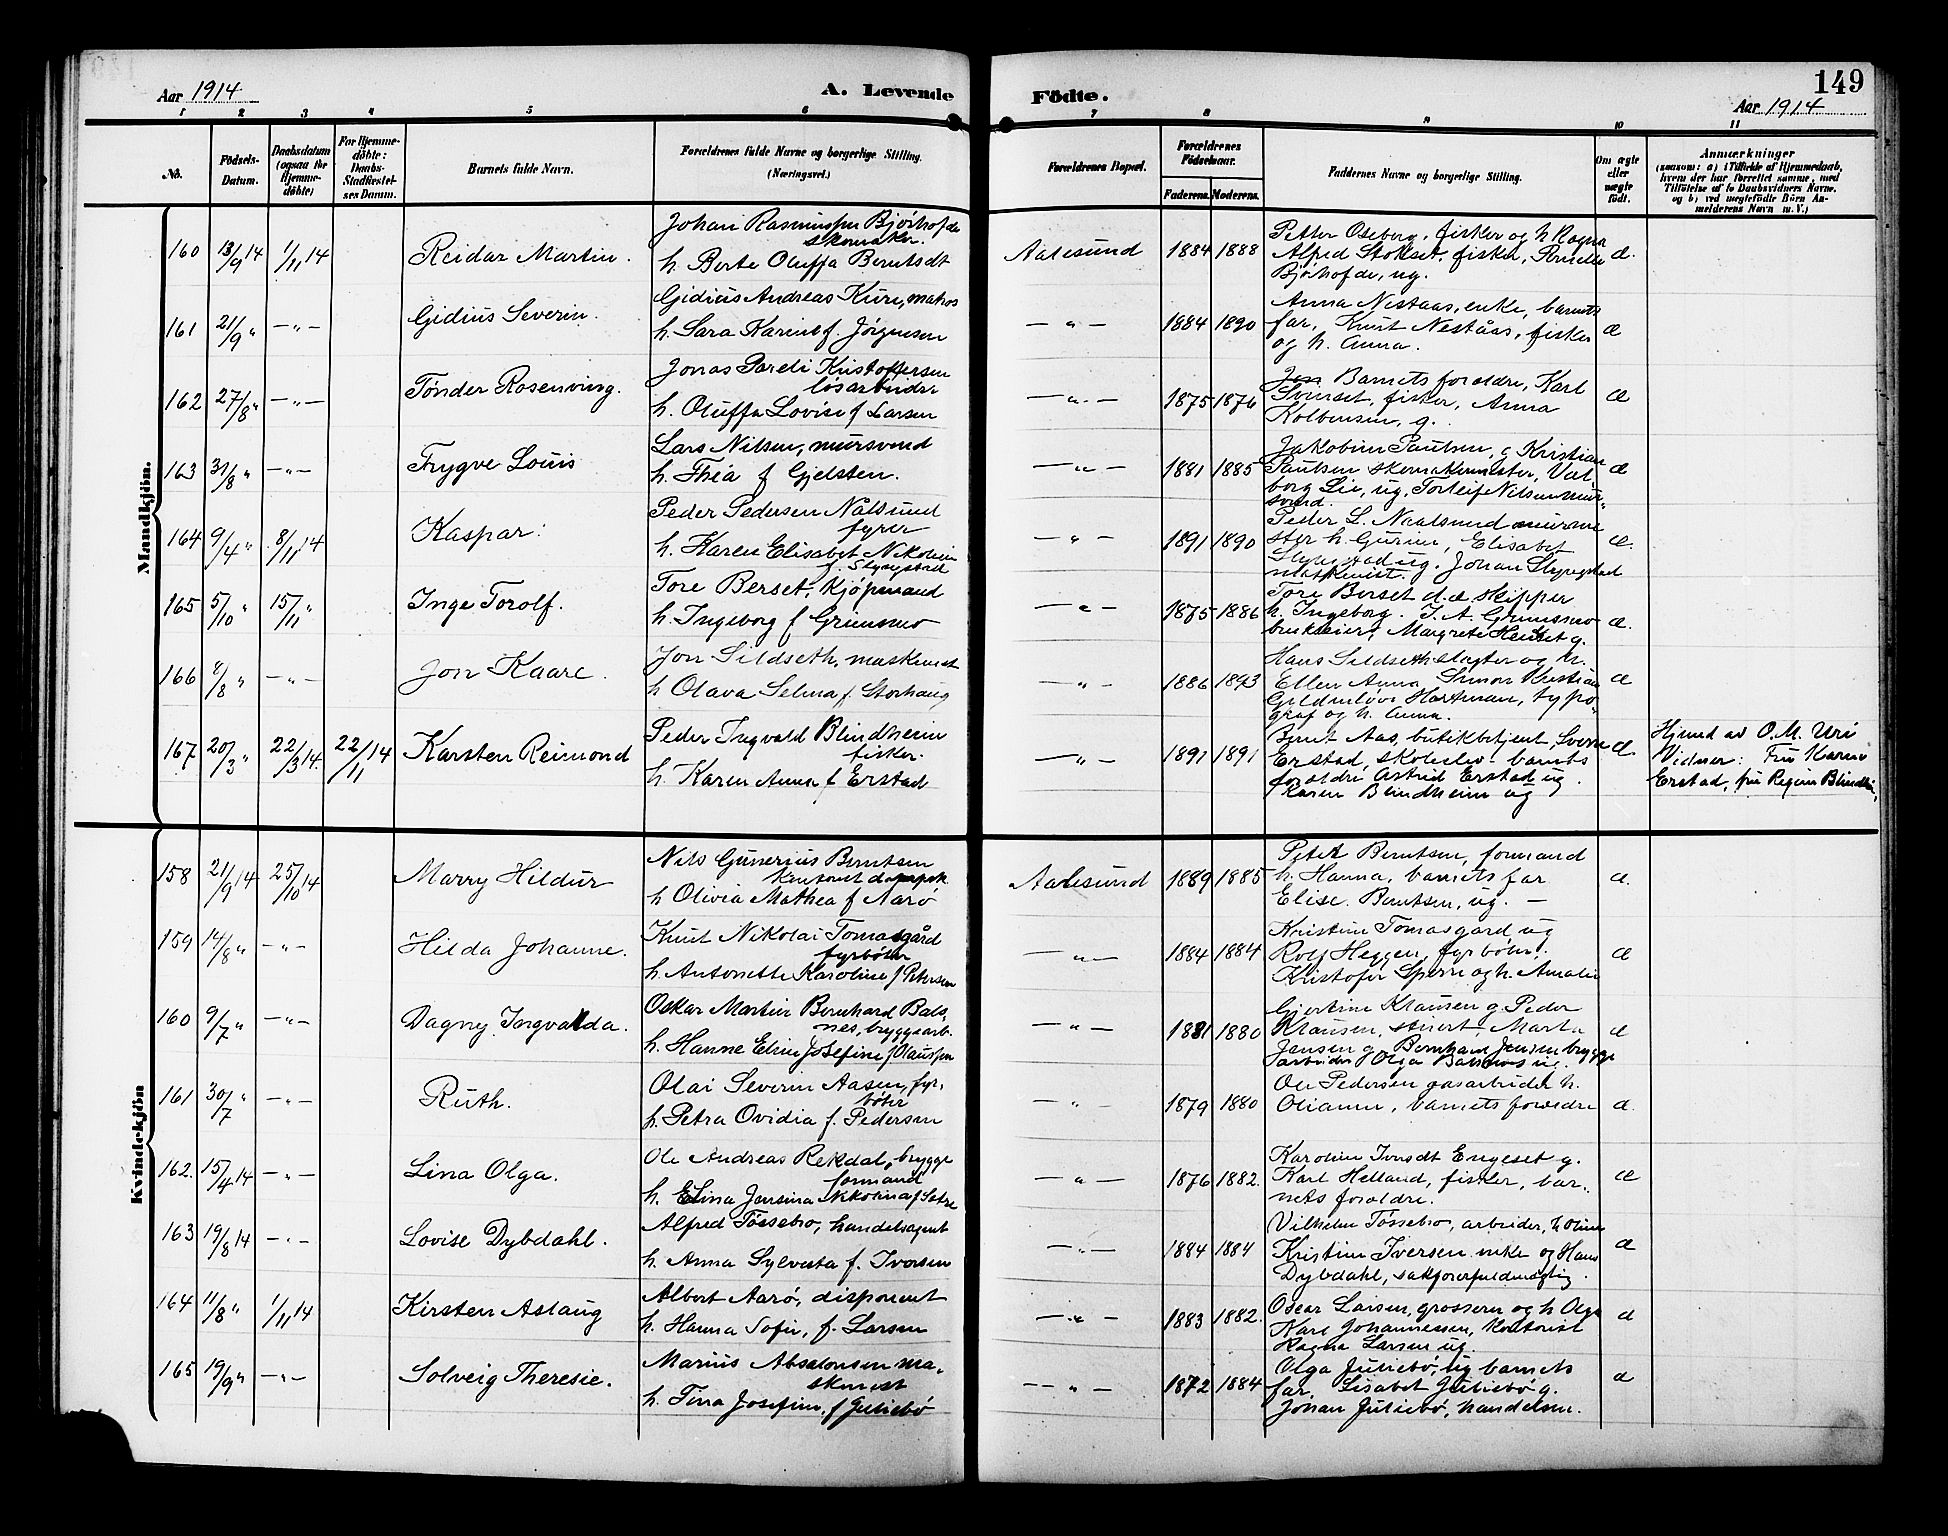 149
Aar 1914
A. Levende Födte.
Aar 1914
1 2 3 4 5 6 7 8 9 10 11
No.
Födsels-Datum.
Daabsdatum (ogsaa for Hjemmedöbte)
For Hjemmedöbte: Daabs-Stadfæstelses Datum.
Barnets fulde Navn.
Forældrenes fulde Navne og borgerlige Stilling. (Næringsvei.)
Forældrenes Bopæl.
Forældrenes Födselsaar.
Faderens. Moderens.
Faddernes Navne og borgerlige Stilling.
Om ægte eller uægte födt.
Anmærkninger
(saasom: a) i Tilfælde af Hjemmedaab, hvem der har forrettet samme, med Tilföielse af to Daabsvidners Navne, og b) ved uægtefödte Börn Anmelderens Navn m. V.)
Mandkjön.
160 13/9 14 1/11 14 Reidar Martin.
Johan Rasmussen Bjørhofde
skomaker.
h. Berte Oluffa Berntsdt
Aalesund 1884 1888
Petter Oseberg, fisker og h. Ragna
Alfred Stokset, fisker, Pernille
Bjørhofde, ug.
æ.
161 21/9 " — " — Gidius Severin.
Gidius Andreas Kure, matros
h. Sara Karine f. Jørgensen
— " — 1884 1890
Anna Nestaas, enke, barnets
far, Knut Neståas, fisker
og h. Anna.
æ
162 27/8 " — " — Tønder Rosenving.
Jonas Pareli Kristoffersen
løsarbeider
h. Oluffa Lovise f Larsen
— " — 1875 1876
Barnets foreldre, Karl
Svinset, fisker, Anna
Kolbensen, g.
æ
163 31/8 " — " — Trygve Louis
Lars Nilsen, mursvend
h. Thea f Gjelsten.
— " — 1881 1885
Jakobine Paulsen, g Kristian
Paulsen skomakermester, Val-
borg Lie, ug, Torleif Nilsen mur-
svend.
æ
164 9/4 " 8/11 14 Kaspar.
Peder Pedersen Nalsund
fyrer
h. Karen Elisabet Nikoline
f. Slyngstad
— " — 1891 1890
Peder L. Naalsund murme
ster h. Gurine, Elisabet
Slyngstad ug. Johan Slyngstad
maskinist.
æ.
165 5/10 " 15/11 " Inge Torolf.
Tore Berset, kjøpmand
h. Ingeborg f Grimsmo
— " — 1875 1886
Tore Berset d.æ skipper
h. Ingeborg. J. A. Grimsmo
bruk eier, Margrete g.
æ.
166 8/8 " — " — Jon Kaare.
Jon Sildseth, maskinist
h Olava Selma f. Storhaug
— " — 1886 1893
Hans Sildseth slagter og h.
Ellen Anna Simon Kristian
Gyldenløve Hartman, typo-
graf og h. Anna.
æ
167 20/3 " 22/3 14. 22/11 14 Karsten Reimond
Peder Ingvald Blindheim
fisker.
h. Karen Anna f Erstad
— " — 1891 1891
Bernt Aas, butikbetjent, Sverre
Erstad, skoleelev - barnets
foreldre Astrid Erstad ug
Karen Blindheim ug
æ
Hjemd av O.M. Uri
Vidner: Fru Karen
Erstad, fru Regine Blindhm,
Kvindekjön
158 21/9 14 25/10 14 Marry Hildur
Nils Gunerius Berntsen
h Olivia Mathea f Aarø
Aalesund 1889 1885
Peter Berntsen, formand
h. Hanna, barnets far
Elise Berntsen, ug. —
æ.
159 14/8 " — " — Hilda Johanne.
Knut Nikolai Tomasgård
fyrbøter
h. Antonette Karoline f Petersen
— " — 1884 1884
Kristine Tomasgård ug
Rolf Heggen, fyrbøter.
Kristofer Sperre og h. Amalie
æ
160 9/7 " — " — Dagny Ingvalda.
Oskar Martin Bernhard Bals-
nes, bryggearb.
h. Hanne Eline Josefine f Olaussen
— " — 1881 1880
Gjertine Klausen g Peder
Klausen, stuert, Marta
Jensen g Bernhard Jensen brygge
arbeider Olga Balsnes ug.
æ
161 30/7 " — " — Ruth.
Olai Severin Aasen, fyr-
bøter
h. Petra Ovidia f. Pedersen
— " — 1879 1880
Ole Pedersen gasarbeider h.
Olianne, barnets foreldre
æ.
162. 15/4 14 — " — Lina Olga.
Ole Andreas Rekdal, brygge
formand
h. Elina Jensina Nikolina f Satre
— " — 1876 1882.
Karoline Iversdt Engeset g.
Karl Helland, fisker, bar-
nets foreldre.
æ
163 19/8 14 — " — Lovise Dybdahl.
Alfred Tøssebro, handelsagent
h. Anna Sylvesta f. Iversen
— " — 1884 1884
Vilhelm Tøssebro, arbeider, h Oline
Kristine Iversen enke og Hans
Dybdahl, sakførerfuldmægtig.
æ
164 11/8 " 1/11 14 Kirsten Aslaug
Albert Aarø, disponent
h. Hanna Sofie, f. Larsen
— " — 1883 1882.
Oscar Larsen, grosserer og h Olga
Karl Johannessen, kontorist
Ragna Larsen ug.
æ
165 19/9 " — " — Solveig Theresie.
Marius Absalonsen ma-
skinist
h. Tina Josefine, f Juliebø
— " — 1872 1884
Olga Juliebø, ug barnets
far, Lisabet Juliebø g.
Johan Juliebø, handelsm.
æ